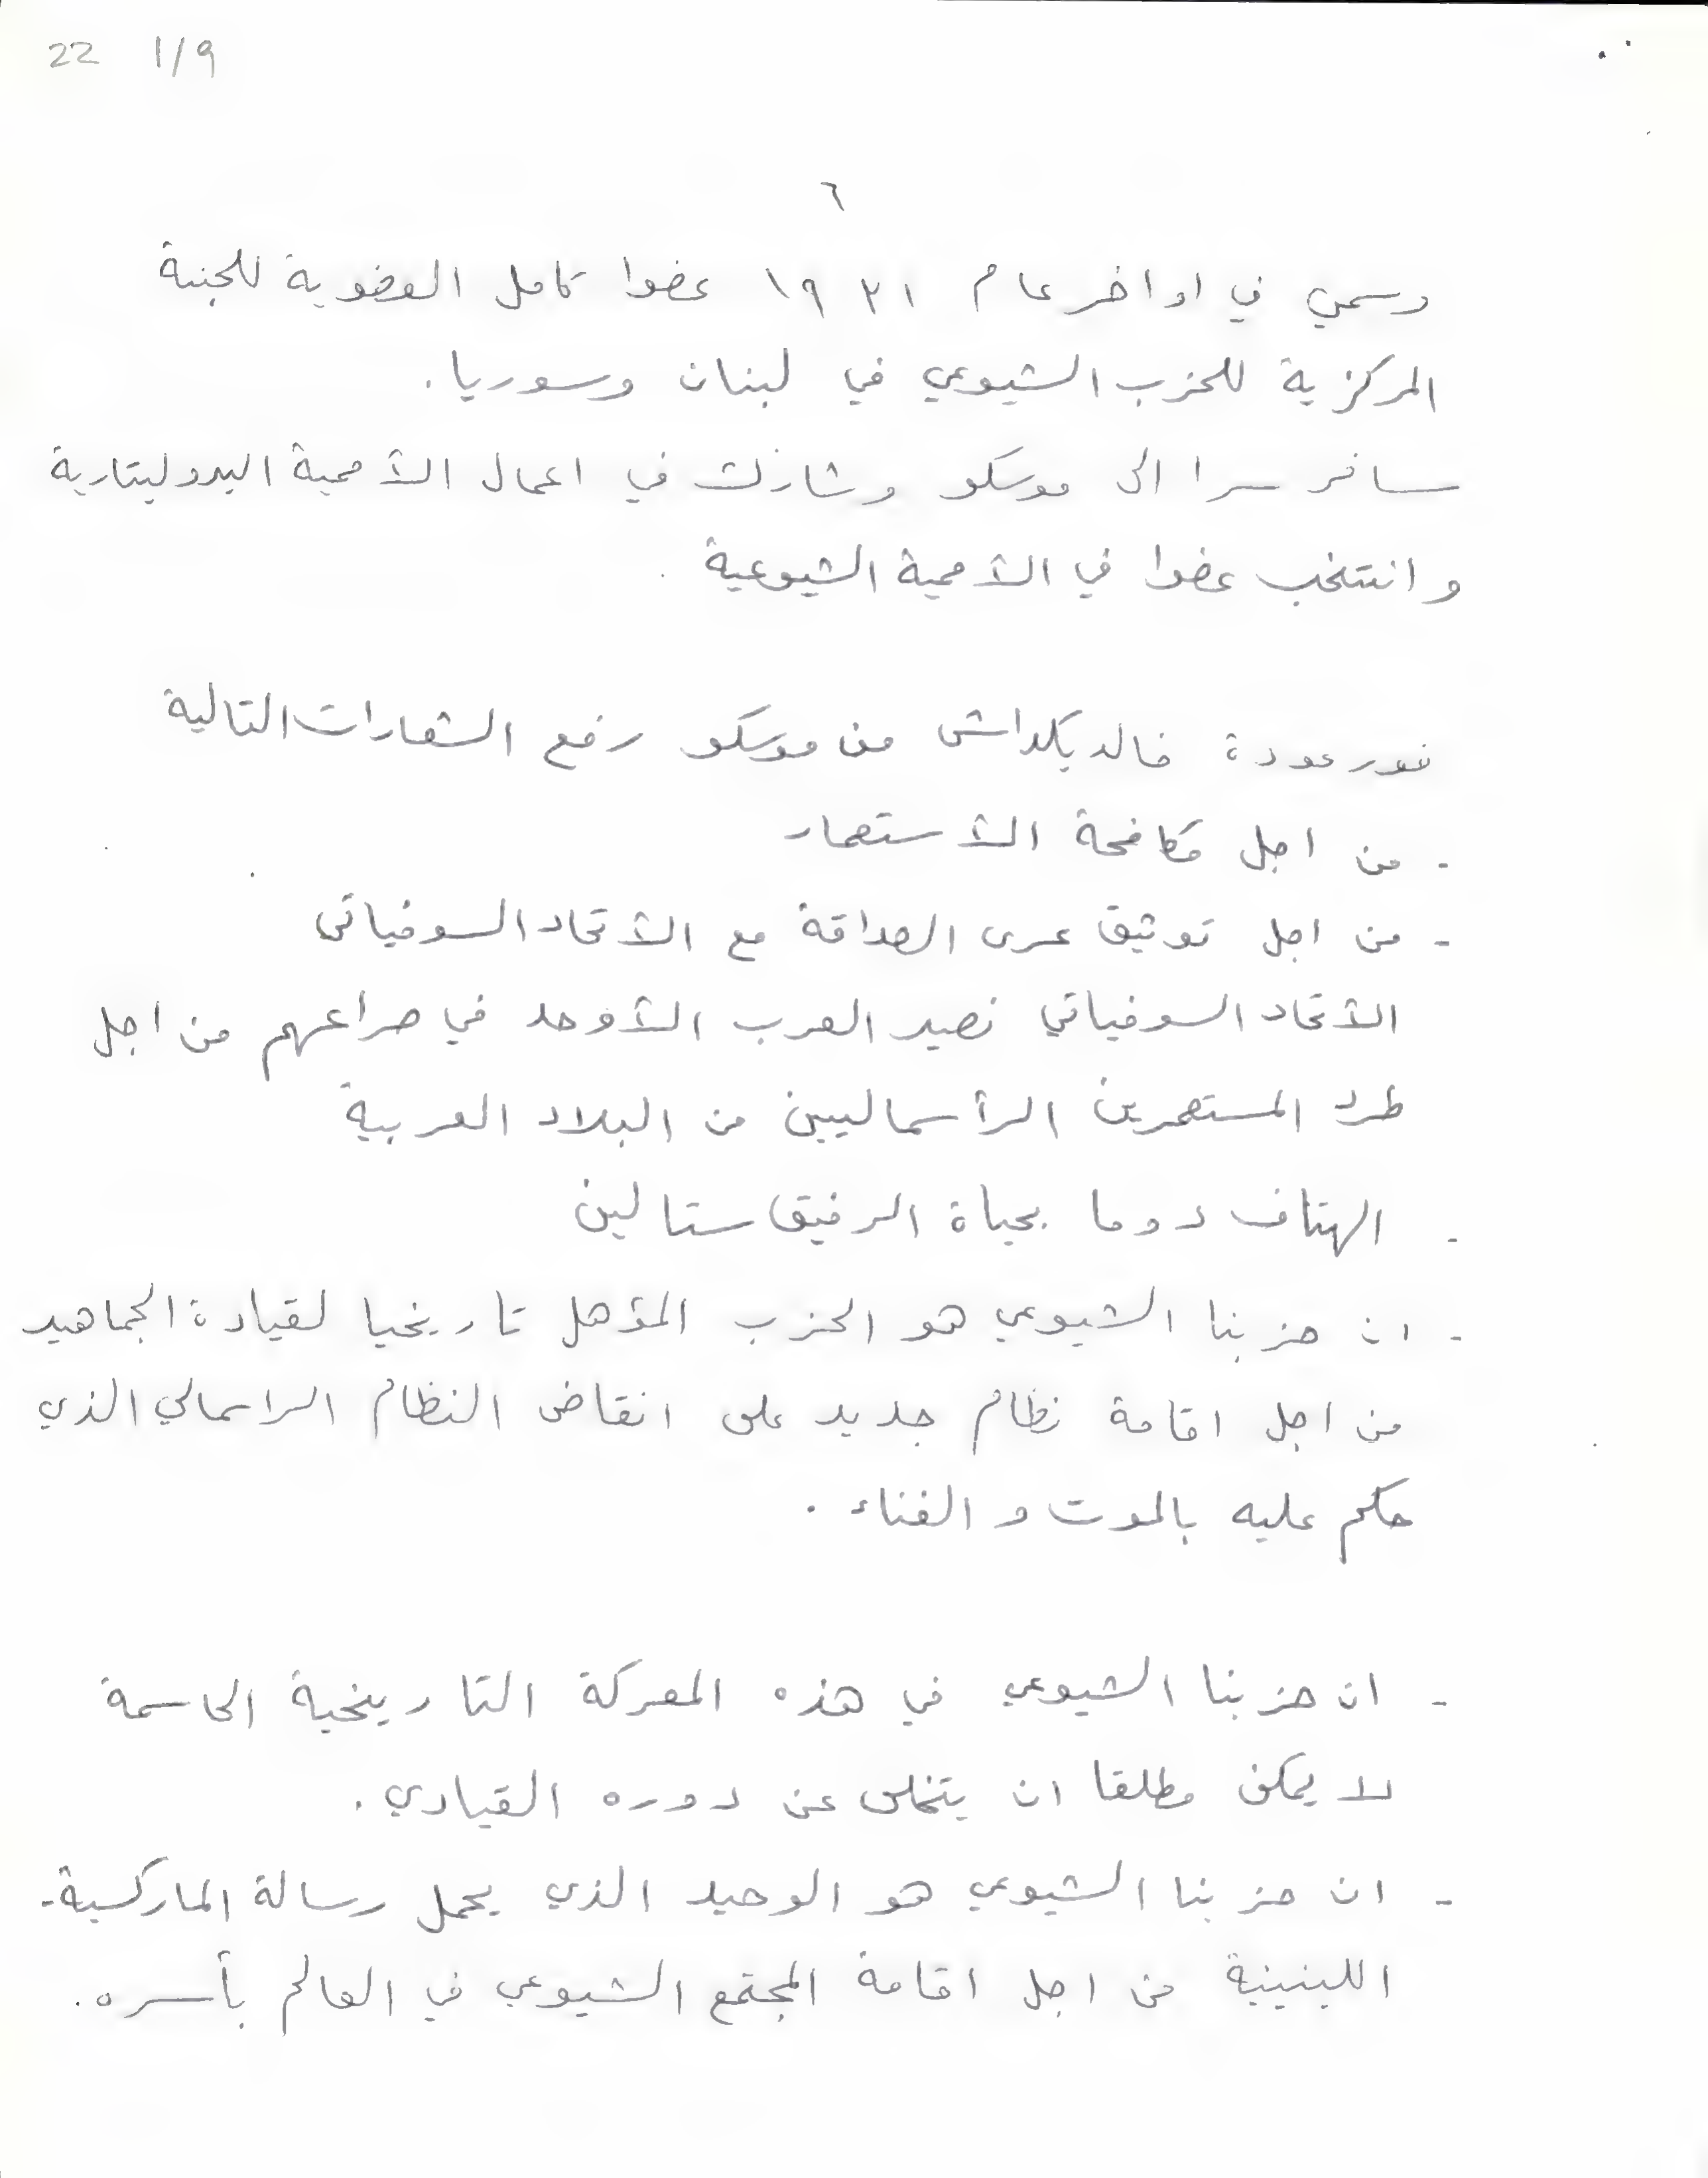 22 1/9
٦
وسمي في اواخر عام ١٩٣١ عضوا كامل العضوية للجنة
المركزية للحزب الشيوعي في لبنان وسوريا.
سافر سرا الى موسكو وشارك في اعمال الأممية البروليتارية
وانتخب عضوا في الأممية الشيوعية .
فور عودة خالد بكداش من موسكو رفع الشعارات التالية
- من اجل مكافحة الأستعمار
- من اجل توثيق عرى الصداقة مع الأتحاد السوفياتي
الأتحاد السوفياتي نصير العرب الأوحد في صراعهم من اجل
طرد المستعمرين الرأسماليين من البلاد العربية
- الهتاف دوما بحياة الرفيق ستالين
- ان حزبنا الشيوعي هو الحزب المؤهل تاريخيا لقيادة الجماهير
من اجل اقامة نظام جديد على انقاض النظام الراسمالي الذي
حكم عليه بالموت والفناء .
- ان حزبنا الشيوعي في هذه المعركة التاريخية الحاسمة
لا يمكن مطلقا ان يتخلى عن دوره القيادي.
- ان حزبنا الشيوعي هو الوحيد الذي يحمل رسالة الماركسية-
اللينينية من اجل اقامة المجتمع الشيوعي في العالم بأسره.